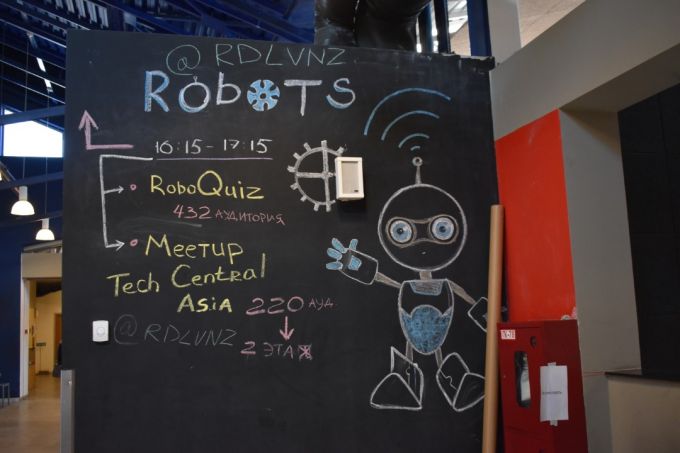 @RDLVNZ
RObOTS
16:15 - 17:15
RoboQuiz
432 АУДИТОРИЯ
MEETUP
TECH CENTRAL
ASIA 220 АУД.
@RDLVNZ
2 ЭТАЖ